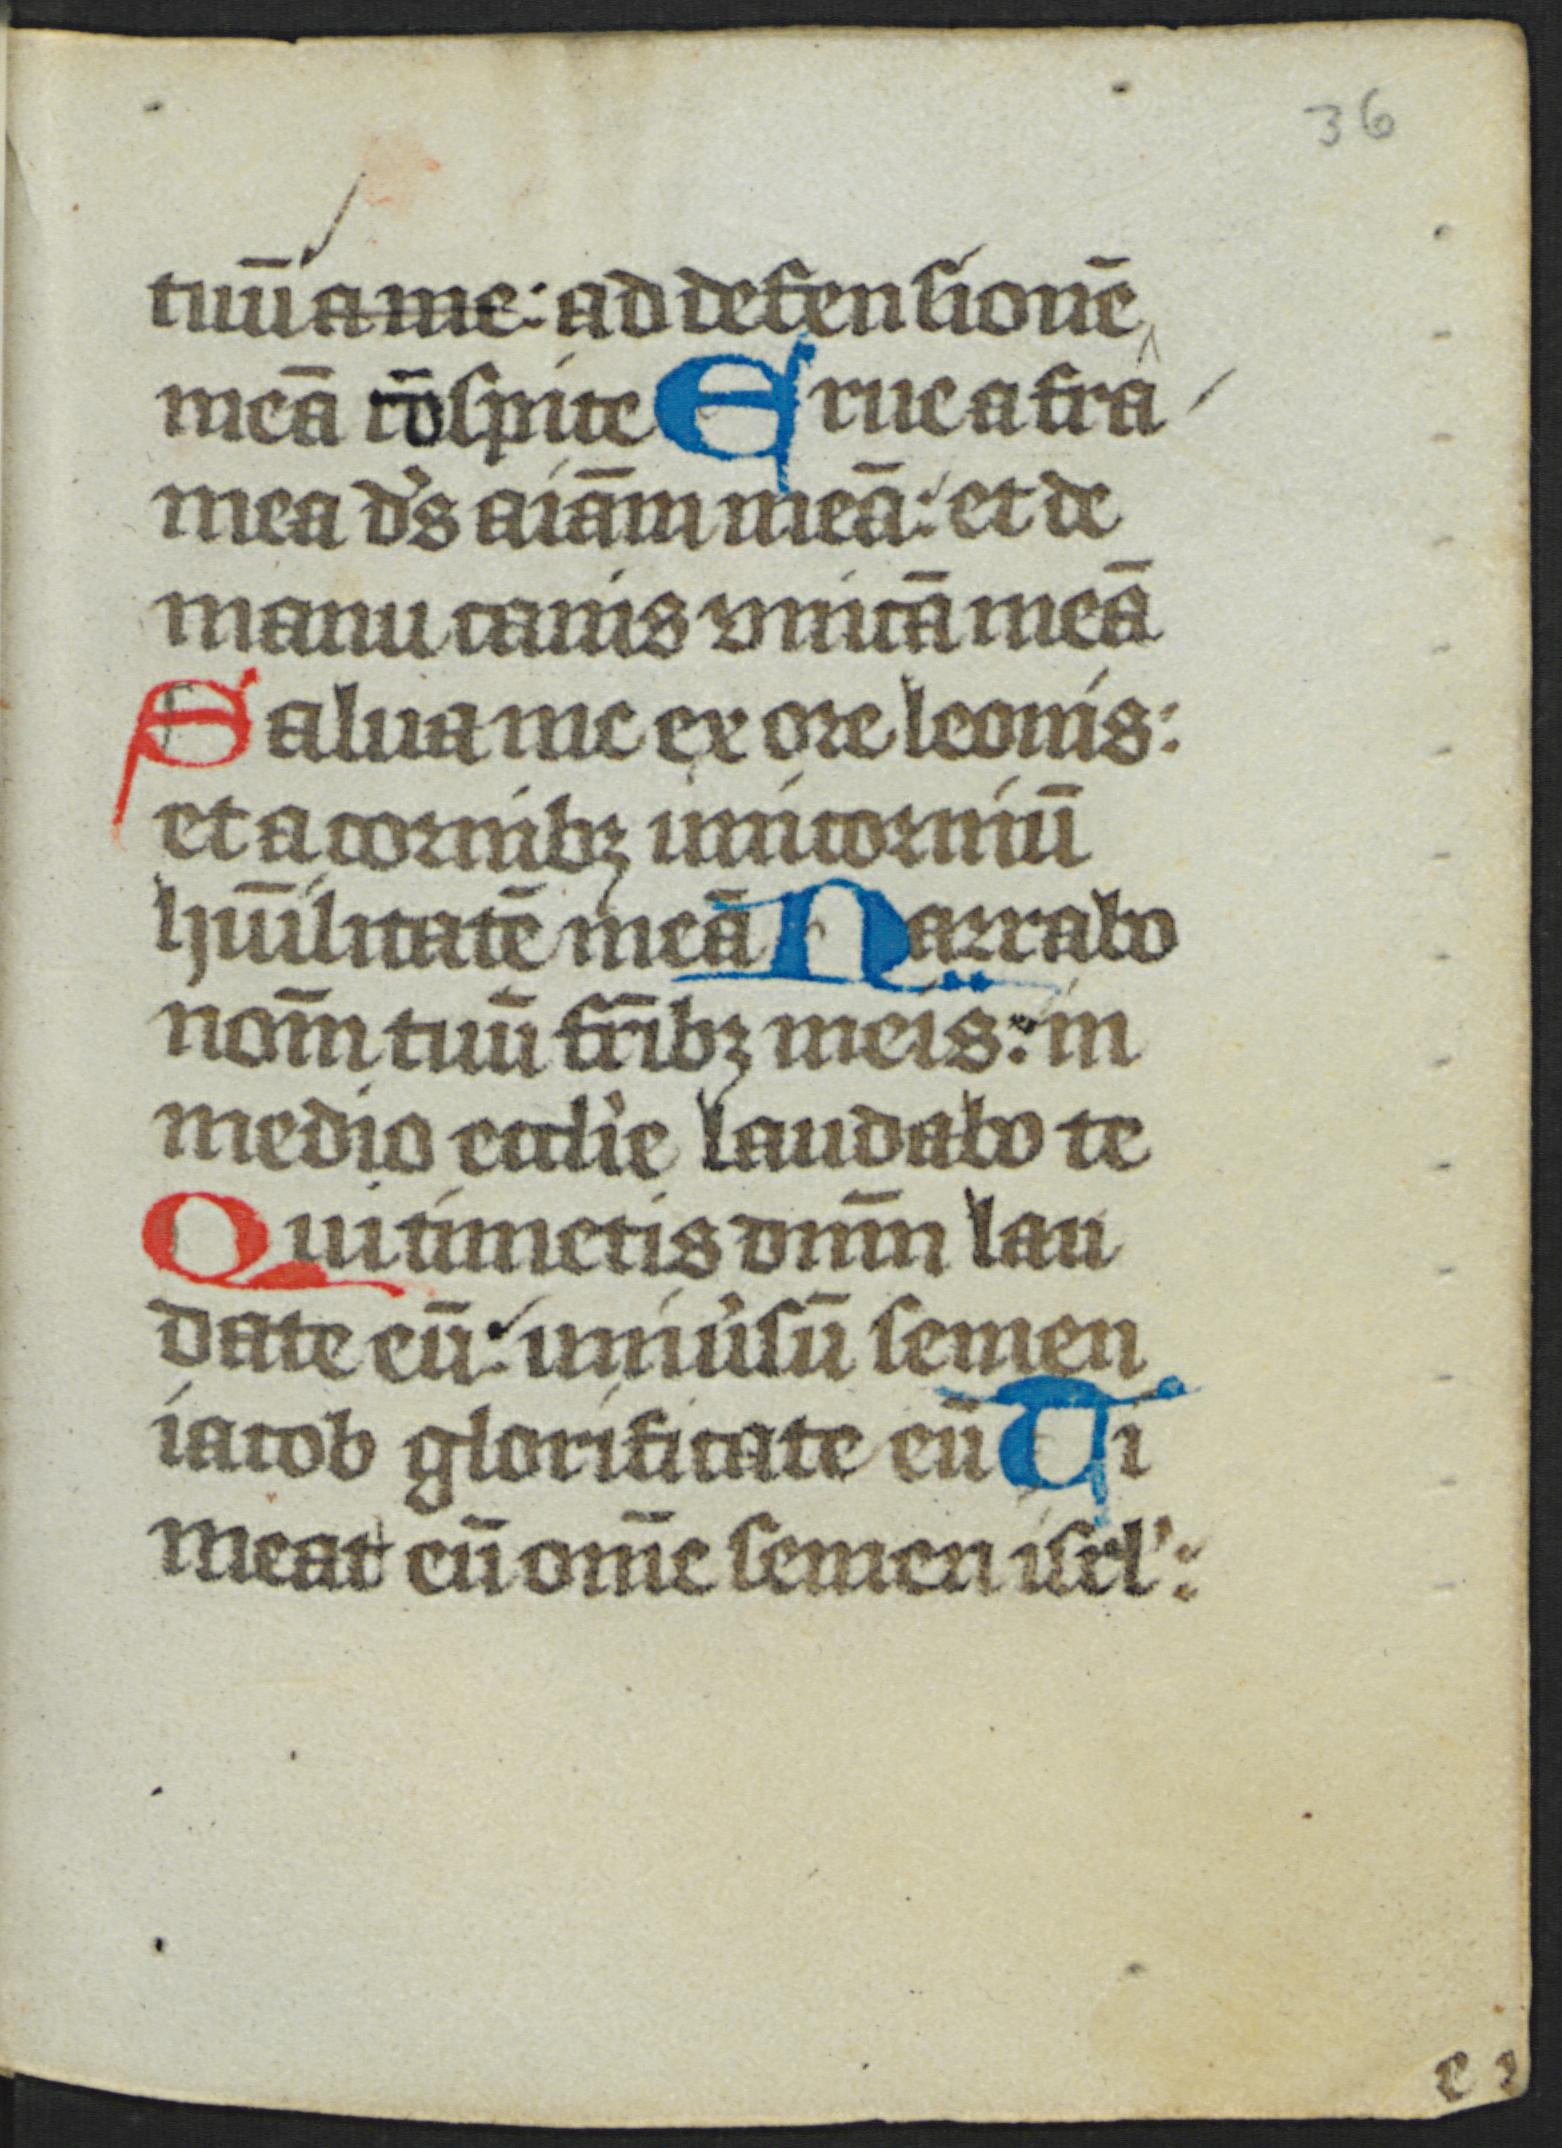 36
tuū a me: ad defensionē
meā cōspice Erue a fra
mea d's aīam meā: et de
manu canis vnicā meā
Salua me ex ore leonis:
et a cornibꝫ unicorniū
hūilitatē meā Narrabo
nom̄ tuū fr̄ibꝫ meis: in
medio eccli'e laudabo te
Qui timetis dnm̄ lau
date eū: uniu'sū semen
iacob glorificate eū Ti
meat eū om̄e semen isrl':